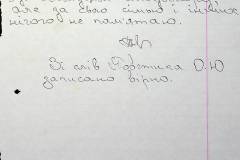 але за свою сімью і інших
нічого не памʼятаю.
Зі слів О.Ю
записано вірно.